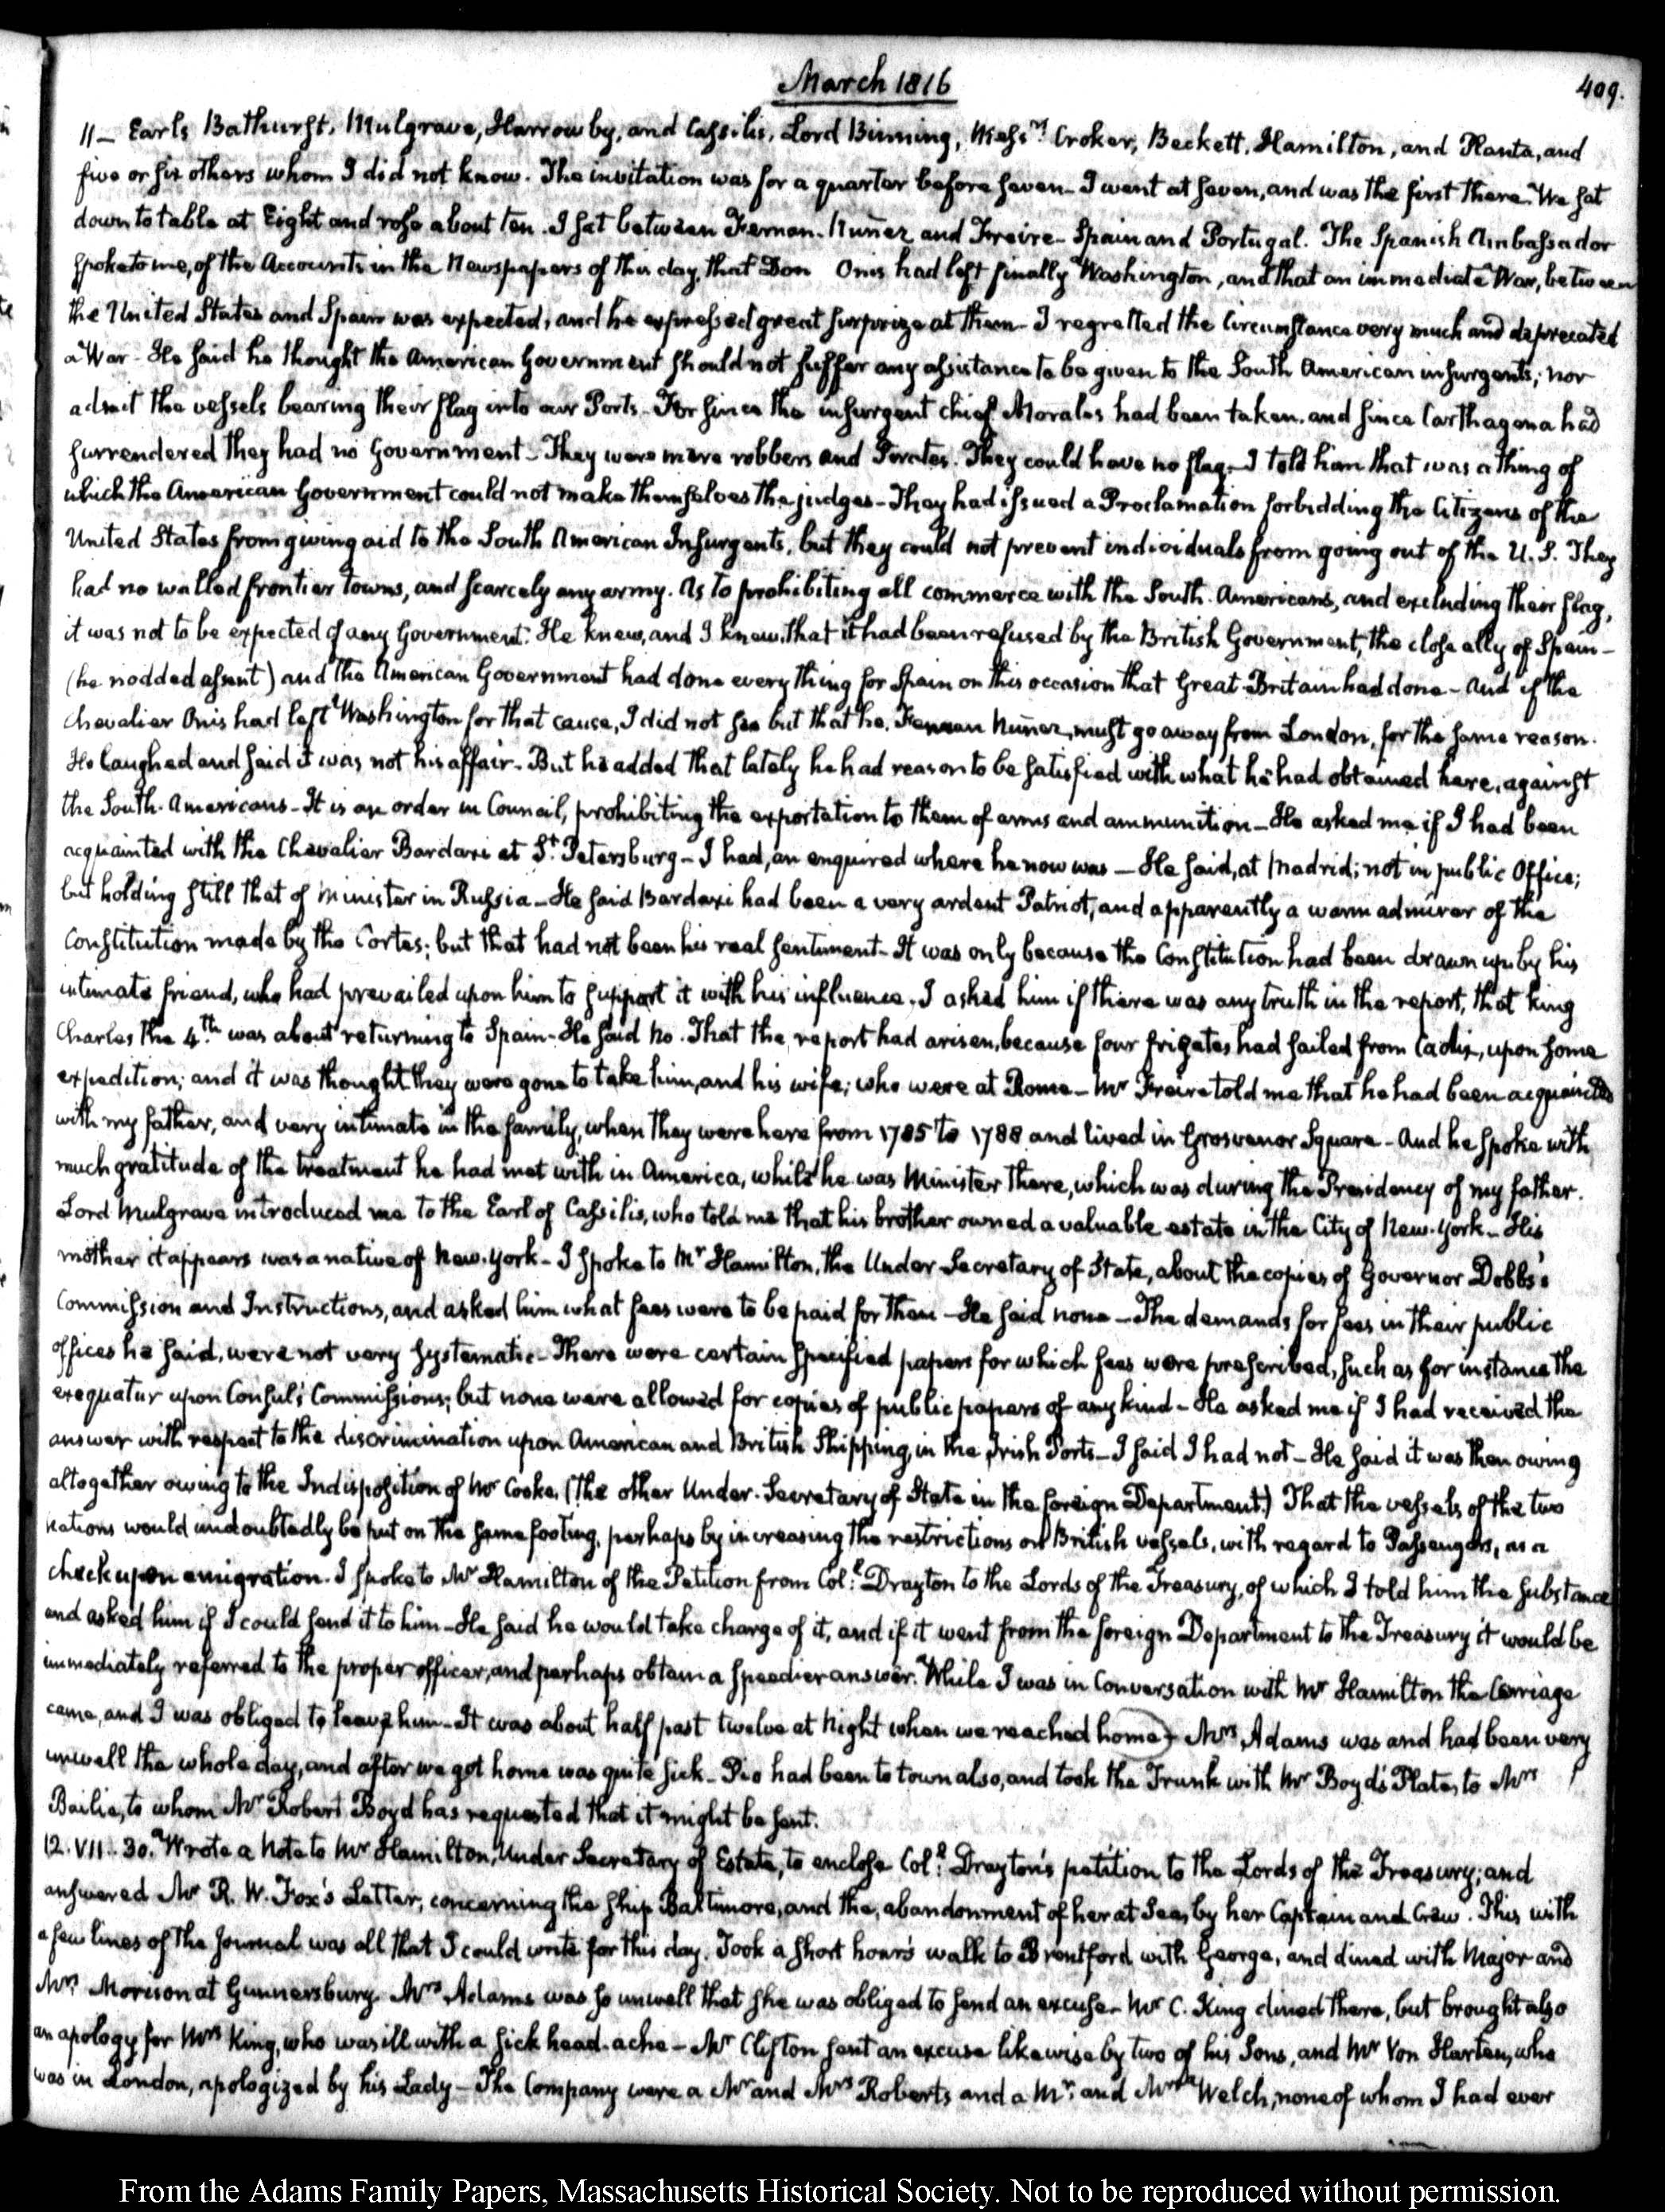 March 1816
409.
11 – Earls Bathurst, Mulgrave, Harrowby, and Cassilis, Lord Binning, Mess.rs Croker, Beckett, Hamilton, and Planta, and
five or six others whom I did not know. The invitation was for a quarter before seven – I went at seven, and was the first there. We sat
down to table at Eight and rose about ten. I sat between Fernan-Nuñez and Freire – Spain and Portugal. The Spanish Ambassador
spoke to me, of the Accounts in the Newspapers of this day, that Don Onis had left finally Washington, and that an immediate War, between
the United States and Spain was expected, and he expressed great surprize at them – I regretted the Circumstance very much and deprecated
a War – He said he thought the American Government should not suffer any assistance to be given to the South American insurgents; nor
admit the vessels bearing their flag into our Ports – For since the insurgent chief Morales had been taken, and since Carthagena had
surrendered they had no Government – They were mere robbers and Pirates. They could have no flag – I told him that was a thing of
which the American Government could not make themselves the judges – They had issued a Proclamation forbidding the Citizens of the
United States from giving aid to the South American Insurgents, but they could not prevent individuals from going out of the U. S. They
had no walled frontier towns, and scarcely any army. As to prohibiting all commerce with the South-Americans, and excluding their flag,
it was not to be expected of any Government. He knew, and I knew, that it had been refused by the British Government, the close ally of Spain –
(he nodded assent) and the American Government had done every thing for Spain on this occasion that Great-Britain had done – And if the
Chevalier Onis had left Washington for that cause, I did not see but that he, Fernan Nuñez, must go away from London, for the same reason.
He laughed and said it was not his affair – But he added that lately he had reason to be satisfied with what he had obtained here, against
the South-Americans – It is an order in Council, prohibiting the exportation to them of arms and ammunition – He asked me if I had been
acquainted with the Chevalier Bardaxi at St. Petersburg – I had, an enquired where he now was – He said, at Madrid; not in public Office;
but holding still that of Minister in Russia – He said Bardaxi had been a very ardent Patriot, and apparently a warm admirer of the
Constitution made by the Cortes; but that had not been his real sentiment – It was only because the Constitution had been drawn up by his
intimate friend, who had prevailed upon him to support it with his influence. I asked him if there was any truth in the report, that king
Charles the 4.th was about returning to Spain – He said no. That the report had arisen, because four frigates had sailed from Cadix, upon some
expedition; and it was thought they were gone to take him, and his wife; who were at Rome – Mr Freire told me that he had been acquainted
with my father, and very intimate in the family, when they were here from 1785 to 1788 and lived in Grosvenor Square – And he spoke with
much gratitude of the treatment he had met with in America, while he was Minister there, which was during the Presidency of my father.
Lord Mulgrave introduced me to the Earl of Cassilis, who told me that his brother owned a valuable estate in the City of New-York – His
mother it appears was a native of New-York – I spoke to Mr Hamilton, the Under Secretary of State, about the copies of Governor Dobbs's
Commission and Instructions, and asked him what fees were to be paid for them – He said none – The demands for fees in their public
offices he said, were not very systematic – There were certain specified papers for which fees were prescribed, such as for instance the
exequatur upon Consul's Commissions; but none were allowed for copies of public papers of any kind – He asked me if I had received the
answer with respect to the discrimination upon American and British Shipping, in the Irish Ports – I said I had not – He said it was then owing
altogether owing to the Indisposition of Mr Cooke. (the other Under-Secretary of State in the foreign Department.) That the vessels of the two
nations would undoubtedly be put on the same footing, perhaps by increasing the restrictions on British vessels, with regard to Passengers, as a
check upon emigration. I spoke to Mr Hamilton of the Petition from Col.l Drayton to the Lords of the Treasury, of which I told him the substance
and asked him if I could send it to him – He said he would take charge of it, and if it went from the foreign Department to the Treasury it would be
immediately referred to the proper officer, and perhaps obtain a speedier answer. While I was in Conversation with Mr Hamilton the Carriage
came, and I was obliged to leave him – It was about half past twelve at Night when we reached home – Mrs Adams was and had been very
unwell the whole day, and after we got home was quite sick – Pio had been to town also, and took the Trunk with Mr Boyd's Plate, to Mrs
Bailie, to whom Mr Robert Boyd has requested that it might be sent.
12. VII. 30. Wrote a Note to Mr Hamilton, Under Secretary of Estate, to enclose Col.l Drayton's petition to the Lords of the Treasury; and
answered Mr R. W. Fox's Letter, concerning the ship Baltimore, and the, abandonment of her at Sea, by her Captain and Crew. This with
a few lines of the Journal was all that I could write for this day. Took a short hour's walk to Brentford with George, and dined with Major and
Mrs Morison at Gunnersbury. Mrs Adams was so unwell that she was obliged to send an excuse – Mr C. King dined there, but brought also
an apology for Mrs King, who was ill with a sick head-ache – Mr Clifton sent an excuse likewise by two of his Sons, and Mr Von Harten, who
was in London, apologized by his Lady – The Company were a Mr and Mrs Roberts and a Mr. and Mrs Welch, none of whom I had ever
From the Adams Family Papers, Massachusetts Historical Society. Not to be reproduced without permission.